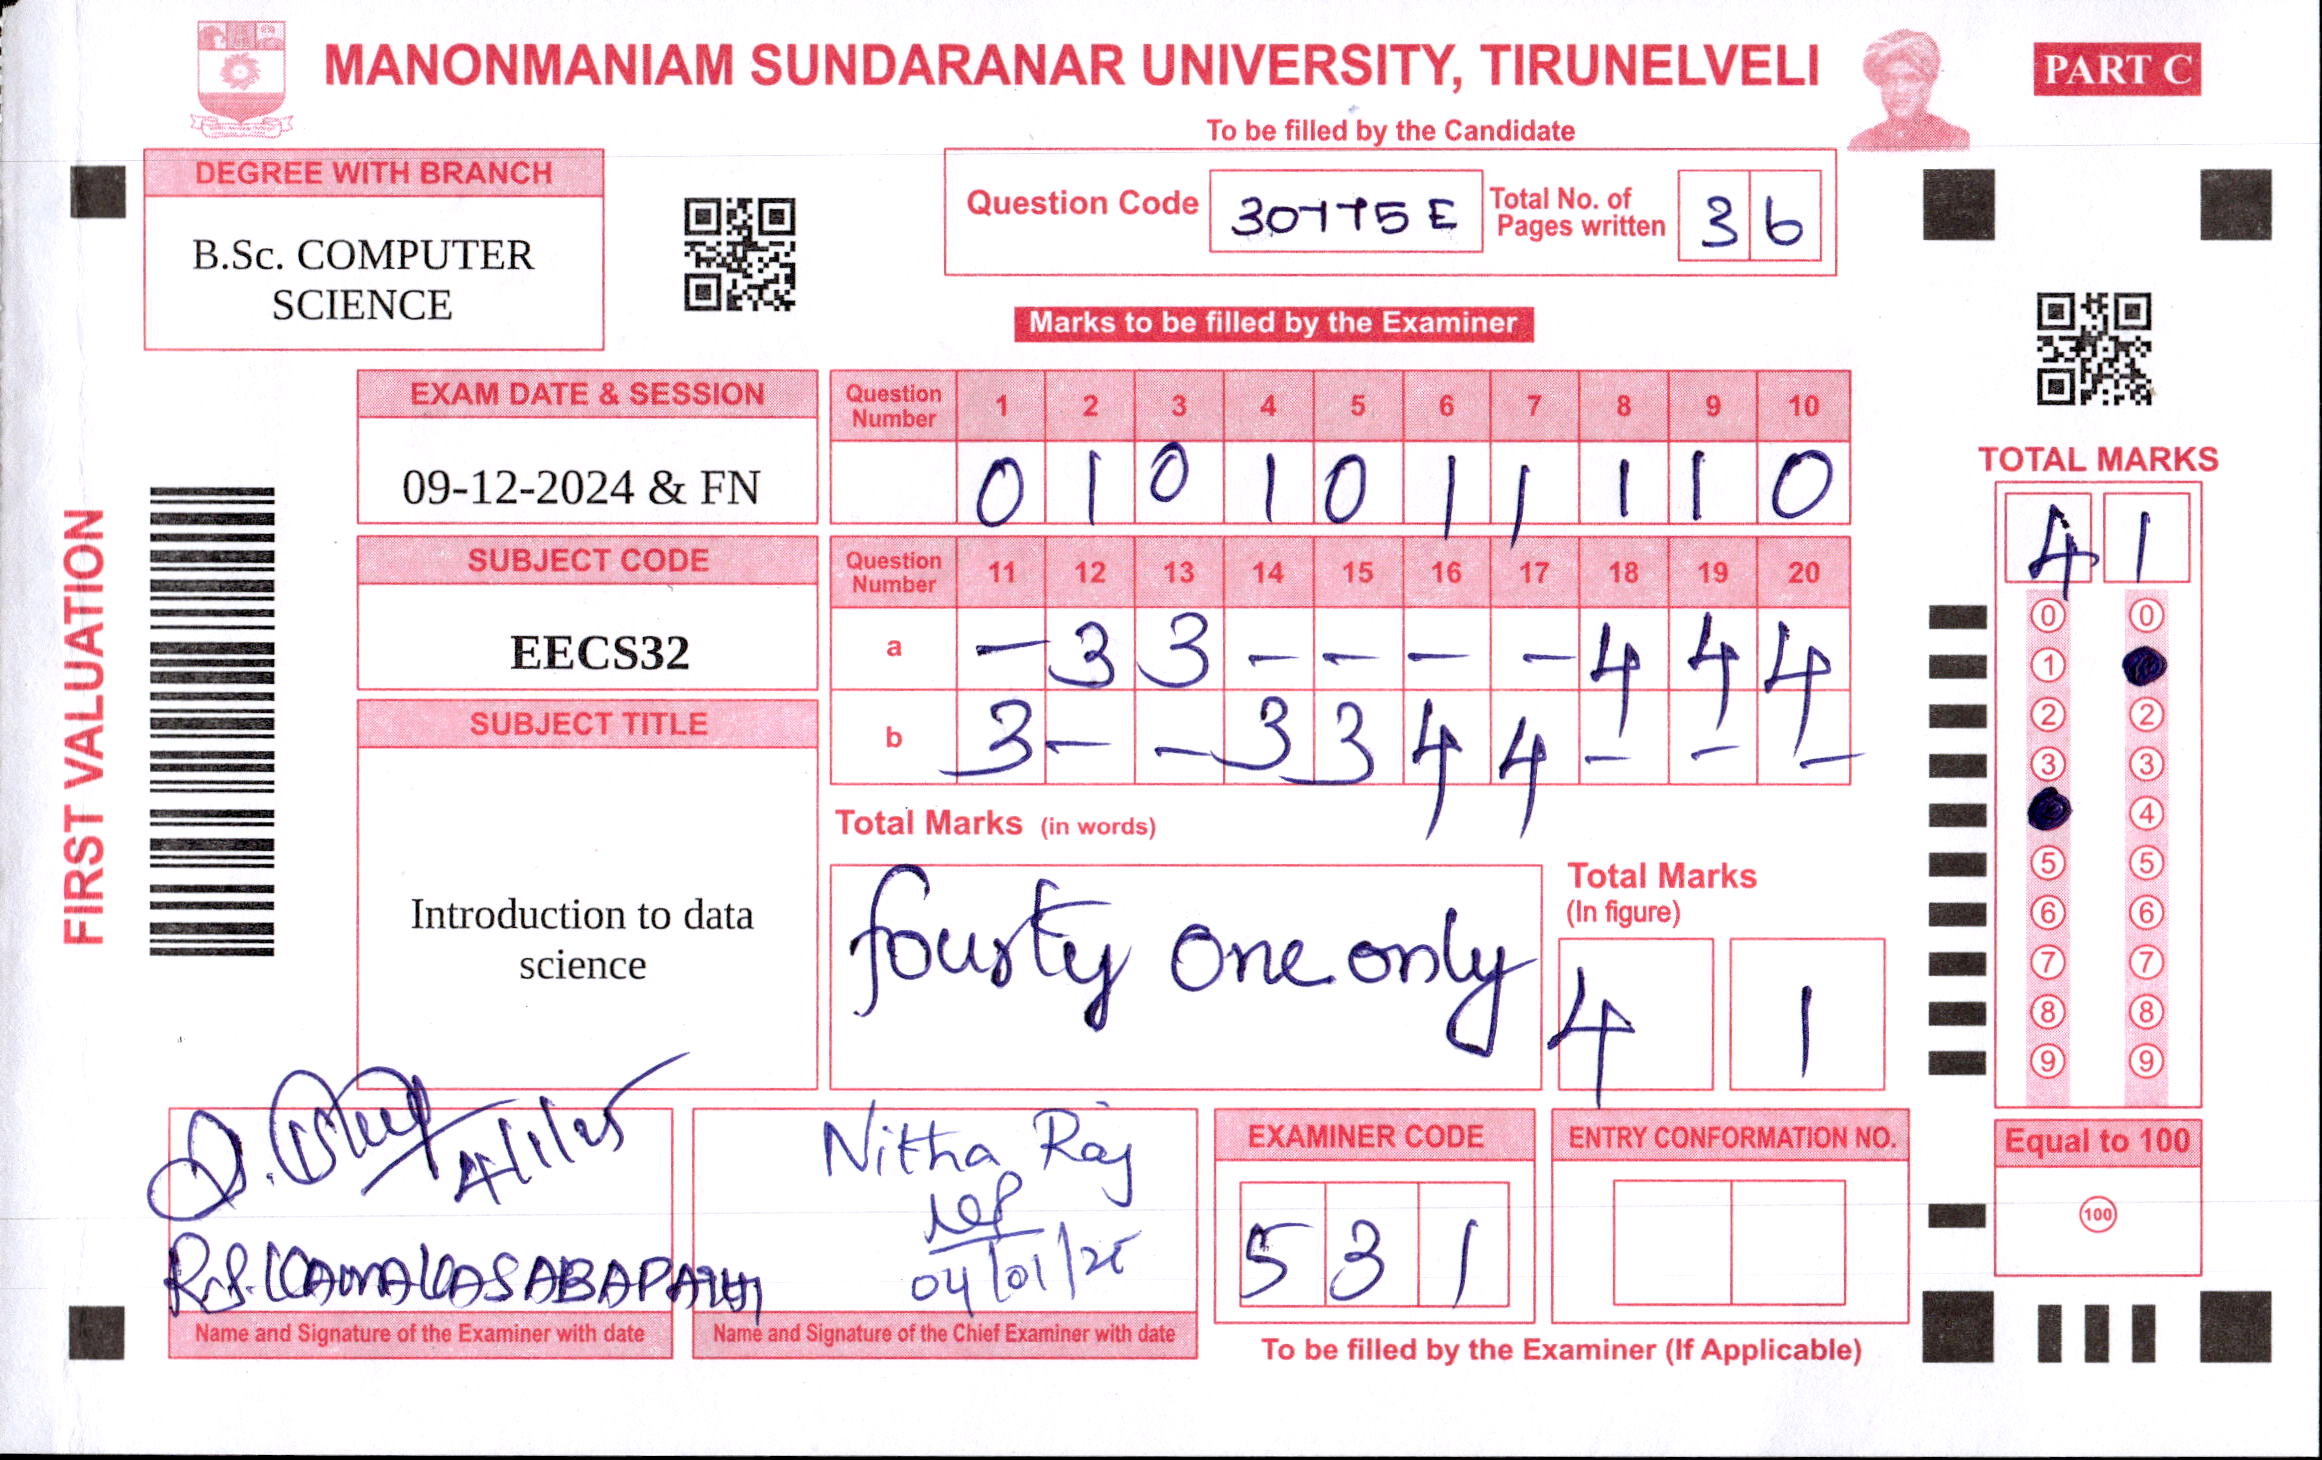 MANONMANIAM SUNDARANAR UNIVERSITY, TIRUNELVELI
PART C
To be filled by the Candidate
DEGREE WITH BRANCH
B.Sc. COMPUTER
SCIENCE
Question Code 30775E Total No. of Pages written 36
Marks to be filled by the Examiner
FIRST VALUATION
EXAM DATE & SESSION
09-12-2024 & FN
SUBJECT CODE
EECS32
SUBJECT TITLE
Introduction to data
science
Question Number 1 2 3 4 5 6 7 8 9 10
0 1 0 1 0 1 1 1 1 0
Question Number 11 12 13 14 15 16 17 18 19 20
a - 3 3 - - - - 4 4 4
b 3 - - 3 3 4 4 - - -
Total Marks (in words)
fourty one only
Total Marks
(In figure)
4 1
TOTAL MARKS
4 1
0 0
1
2 2
3 3
4
5 5
6 6
7 7
8 8
9 9
Equal to 100
100
4/1/25
Name and Signature of the Examiner with date
Nitha Raj
04/01/25
Name and Signature of the Chief Examiner with date
EXAMINER CODE
5 3 1
ENTRY CONFORMATION NO.
To be filled by the Examiner (If Applicable)